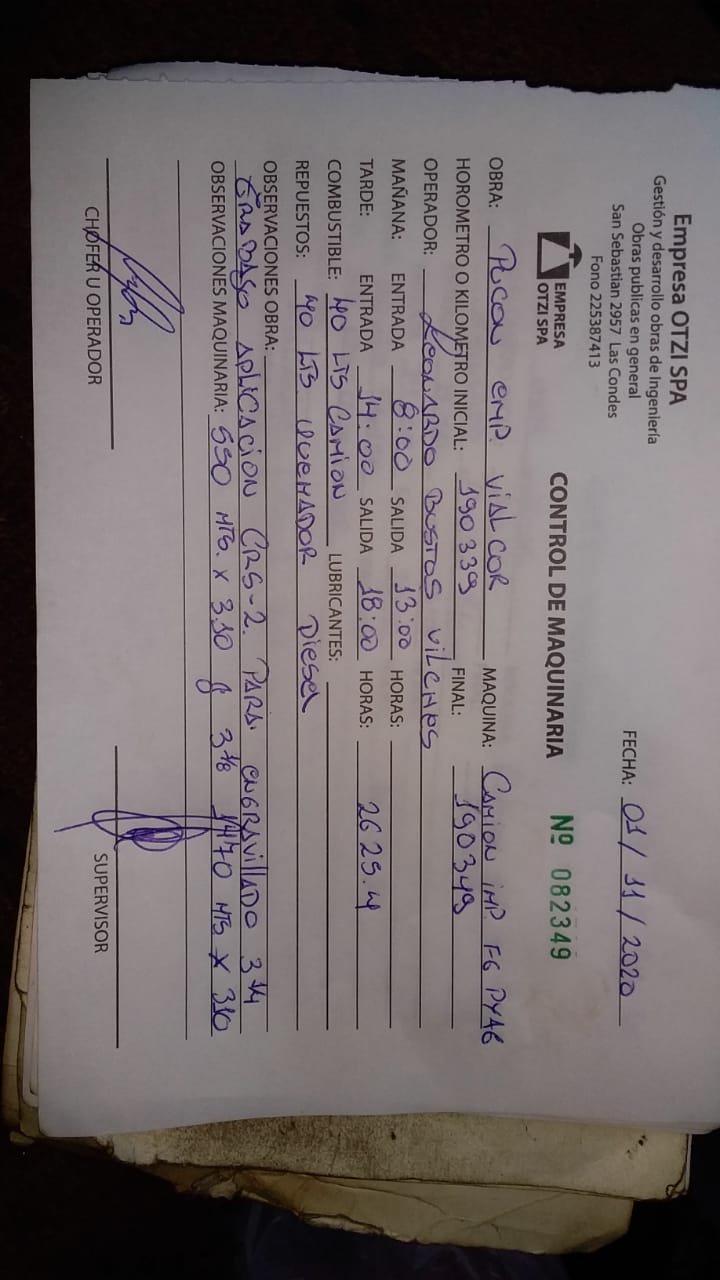 Empresa OTZI SPA
Gestión y desarrollo obras de Ingeniería
Obras publicas en general
San Sebastian 2957 Las Condes
Fono 225387413
FECHA: 01/11/2020
EMPRESA
OTZI SPA
CONTROL DE MAQUINARIA
Nº 082349
OBRA: PUCON EMP. VIALCOR MAQUINA: CAMION IMP F6 PYAB
HOROMETRO O KILOMETRO INICIAL: 190339 FINAL: 190349
OPERADOR: LEONARDO BUSTOS VILCHES
MAÑANA: ENTRADA 8:00 SALIDA 13:00 HORAS:
TARDE: ENTRADA 14:00 SALIDA 18:00 HORAS: 2625.4
COMBUSTIBLE: 40 LTS CAMION LUBRICANTES:
REPUESTOS: 40 LTS QUEMADOR Diesel
OBSERVACIONES OBRA:
APLICACION CRS-2. PARA. ENGRAVILLADO 3/4
OBSERVACIONES MAQUINARIA: 550 MTS. X 3.10 y 3/8 1470 MTS X 3.10
CHOFER U OPERADOR
SUPERVISOR